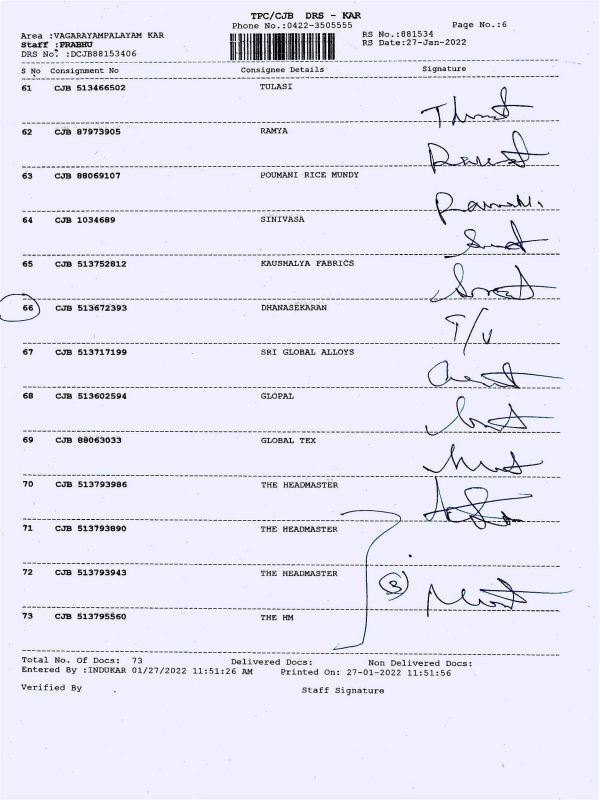 TPC/CJB DRS - KAR
Phone No.:0422-3505555 Page No.:6
Area :VAGARAYAMPALAYAM KAR RS No.:881534
Staff :PRABHU RS Date:27-Jan-2022
DRS No. :DCJB88153406
S No Consignment No Consignee Details Signature
61 CJB 513466502 TULASI
62 CJB 87973905 RAMYA
63 CJB 88069107 POUMANI RICE MUNDY
64 CJB 1034689 SINIVASA
65 CJB 513752812 KAUSHALYA FABRICS
66 CJB 513672393 DHANASEKARAN
67 CJB 513717199 SRI GLOBAL ALLOYS
68 CJB 513602594 GLOPAL
69 CJB 88063033 GLOBAL TEX
70 CJB 513793986 THE HEADMASTER
71 CJB 513793890 THE HEADMASTER
72 CJB 513793943 THE HEADMASTER
73 CJB 513795560 THE HM
Total No. Of Docs: 73 Delivered Docs: Non Delivered Docs:
Entered By :INDUKAR 01/27/2022 11:51:26 AM Printed On: 27-01-2022 11:51:56
Verified By Staff Signature